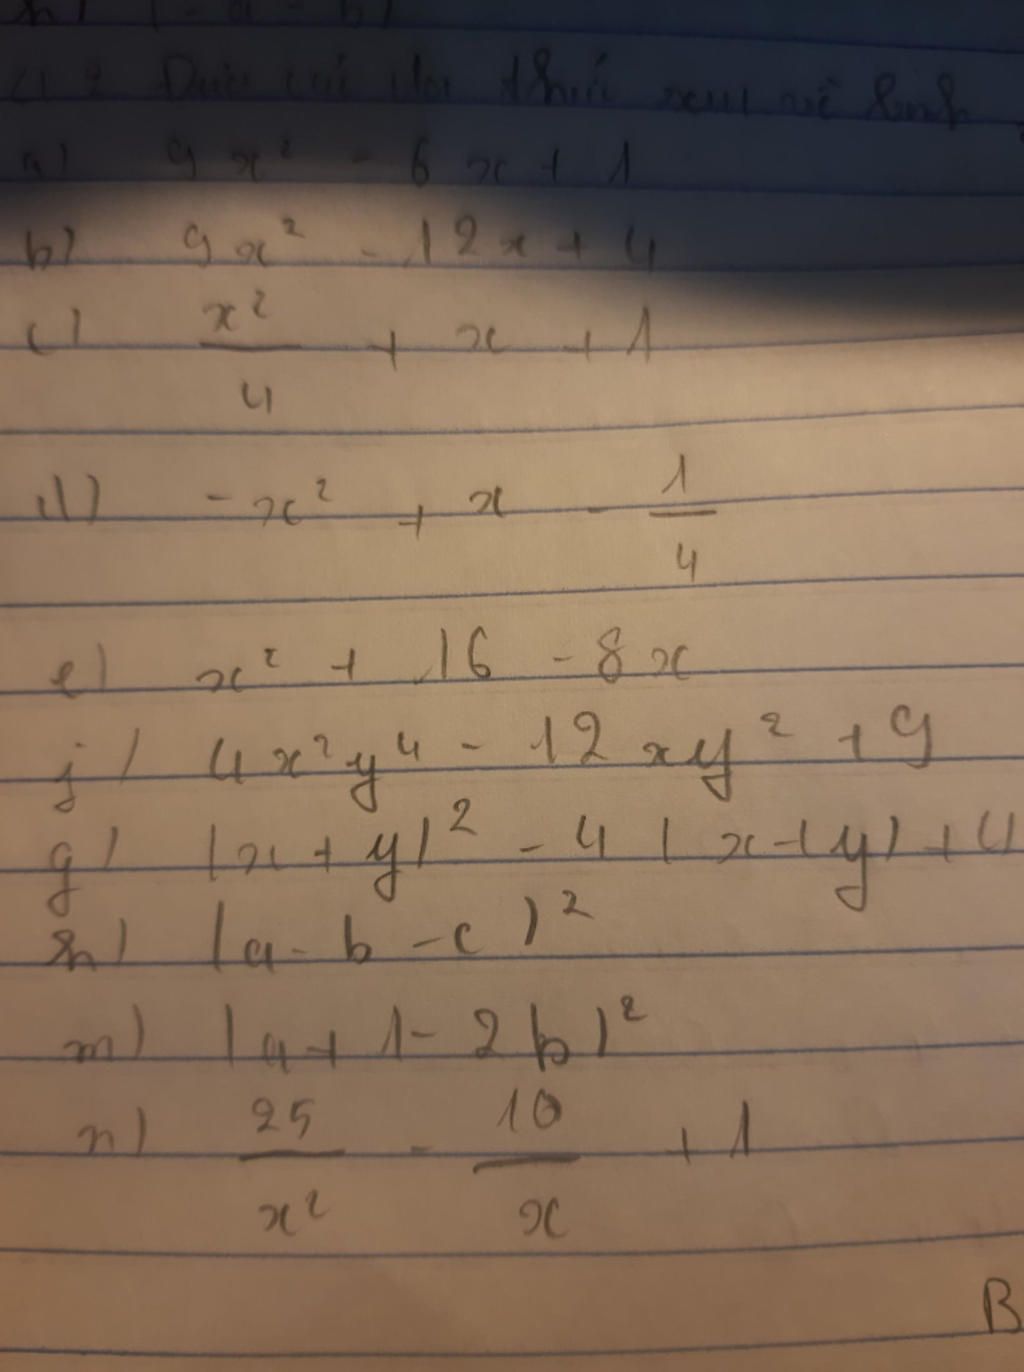 Đưa các đa thức sau về bình
a) 9x² - 6x + 1
b) 9x² - 12x + 4
c) x²/4 + x + 1
d) -x² + x - 1/4
e) x² + 16 - 8x
j) 4x²y⁴ - 12xy² + 9
g) (x + y)² - 4(x + y) + 4
h) (a - b - c)²
m) (a + 1 - 2b)²
n) 25/x² - 10/x + 1
B